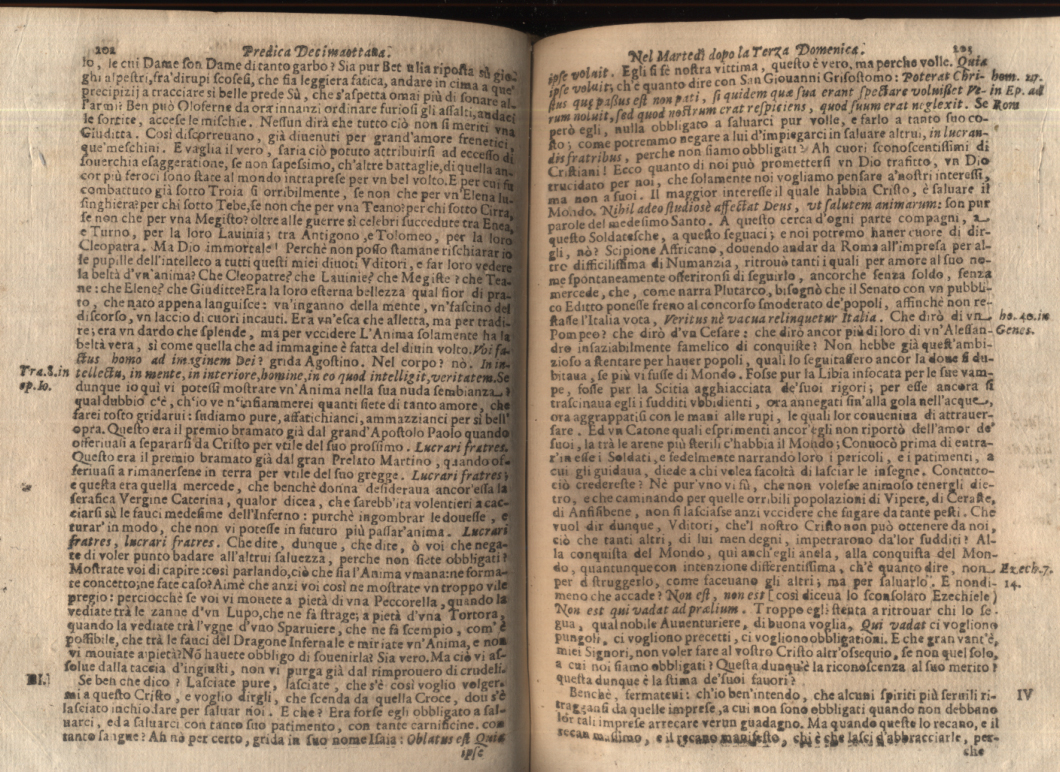 202
Predica Decimaottaua.
lo, le cui Dame son Dame di tanto garbo? Sia pur Betulia riposta sù gio-
ghi alpestri, fra'dirupi scosesi, che sia leggiera fatica, andare in cima a que'
precipizij a tracciare si belle prede Sù, che s'aspetta omai più di sonare al-
l'armi? Ben può Oloferne da ora innanzi ordinare furiosi gli assalti, andaci
le sortite, accese le mischie. Nessun dirà che tutto ciò non si meriti vna
Giuditta. Cosi discorreuano, già diuenuti per grand'amore frenetici,
que'meschini. E vaglia il vero, saria ciò potuto attribuirsi ad eccesso di
souerchia esaggeratione, se non sapessimo, ch'altre battaglie, di quella an-
cor più feroci sono state al mondo intraprese per vn bel volto. E per cui fu
combattuto già sotto Troia si orribilmente, se non che per vn'Elena lu-
singhiera? per chi sotto Tebe, se non che per vna Teano? per chi sotto Cirra,
se non che per vna Megisto? oltre alle guerre si celebri succedute tra Enea,
e Turno, per la loro Lauinia; tra Antigono, e Tolomeo, per la loro
Cleopatra. Ma Dio immortale! Perchè non posso stamane rischiarar io
le pupille dell'intelleto a tutti questi miei diuoti Vditori, e far loro vedere
la beltà d'vn'anima? Che Cleopatre? che Lauinie? che Megiste? che Tea-
ne: che Elene? che Giuditte? Era la loro esterna bellezza qual fior di pra-
to, che nato appena languisce: vn'inganno della mente, vn'fascino del
discorso, vn laccio di cuori incauti. Era vn'esca che alletta, ma per tradi-
re; era vn dardo che splende, ma per vccidere L'Anima solamente ha la
beltà vera, si come quella che ad immagine è fatta del diuin volto. Voi fa-
ctus homo ad imaginem Dei? grida Agostino. Nel corpo? nò. In in-
Tra.8.in tellectu, in mente, in interiore, homine, in eo quod intelligit, veritatem. Se
ep.Io. dunque io quì vi potessi mostrare vn'Anima nella sua nuda sembianza,
qual dubbio c'è, ch'io ve n'infiammerei quanti siete di tanto amore, che
sarei tosto gridarui: sudiamo pure, affatichianci, ammazzianci per si bell'
opra. Questo era il premio bramato già dal grand'Apostolo Paolo quando
offeriuali a separarsi da Cristo per vtile del suo prossimo. Lucrari fratres.
Questo era il premio bramato già dal gran Prelato Martino, quando of-
feriuasi a rimanersene in terra per vtile del suo gregge. Lucrari fratres;
e questa era quella mercede, che benchè donna desideraua ancor'essa la
serafica Vergine Caterina, qualor dicea, che sarebb'ita volentieri a cac-
ciarsi sù le fauci medesime dell'Inferno: purchè ingombrar le douesse, e
turar' in modo, che non vi potesse in futuro più passar'anima. Lucrari
fratres, lucrari fratres. Che dite, dunque, che dite, ò voi che nega-
te di voler punto badare all'altrui saluezza, perche non siete obbligati?
Mostrate voi di capire: così parlando, ciò che sia l'Anima vmana: ne forma-
te concetto; ne fate caso? Aimè che anzi voi così ne mostrate vn troppo vile
pregio: perciocchè se voi vi mouete a pietà di vna Peccorella, quando la
vediate trà le zanne d'vn Lupo, che ne fà strage; a pietà d'vna Tortora,
quando la vediate trà l'vgne d'vno Sparuiere, che ne fà scempio, com'è
possibile, che trà le fauci del Dragone Infernale e miriate vn'Anima, e non
vi mouiate a pietà? Nõ hauete obbligo di souenirla? Sia vero. Ma ciò vi as-
solue dalla taccia d'ingiusti, non vi purga già dal rimprouero di crudeli.
III. Se ben che dico? Lasciate pure, lasciate, che s'è così voglio volger-
mi a questo Cristo, e voglio dirgli, che scenda da quella Croce, dou s'è
lasciato inchiodare per saluar noi. E che? Era forse egli obbligato a sal-
uarci, ed a saluarci con tanto suo patimento, con tante carnificine. con
tanto sangue? Ah nò per certo, grida in suo nome Isaia: Oblatus est Quia
ipse
Nel Martedì dopo la Terza Domenica. 203
ipse voluit. Egli si fè nostra vittima, questo è vero, ma perche volle. Quia
ipse voluit, ch'è quanto dire con San Giouanni Grisostomo: Poterat Chri- hom. 27.
stus quæ passus est non pati, si quidem quæ sua erant spectare voluisset Ve- in Ep. ad
rum noluit, sed quod nostrum erat respiciens, quod suum erat neglexit. Se Rom
però egli, nulla obbligato a saluarci pur volle, e farlo a tanto suo co-
sto; come potremmo negare a lui d'impiegarci in saluare altrui, in lucran-
dis fratribus, perche non siamo obbligati? Ah cuori sconoscentissimi di
Cristiani! Ecco quanto di noi può promettersi vn Dio trafitto, vn Dio
trucidato per noi, che solamente noi vogliamo pensare a'nostri interessi,
ma non a suoi. Il maggior interesse il quale habbia Cristo, è saluare il
Mondo. Nihil adeo studiosè affectat Deus, vt salutem animarum: son pur
parole del medesimo Santo. A questo cerca d'ogni parte compagni, a
questo Soldatesche, a questo seguaci; e noi potremo hauer cuore di dir-
gli, nò? Scipione Affricano, douendo andar da Roma all'impresa per al-
tro difficilissima di Numanzia, ritrouò tanti i quali per amore al suo no-
me spontaneamente offerironsi di seguirlo, ancorche senza soldo, senza
mercede, che, come narra Plutarco, bisognò che il Senato con vn pubbli-
co Editto ponesse freno al concorso smoderato de'popoli, affinchè non re-
stasse l'Italia vota, Veritus nè vacua relinquetur Italia. Che dirò di vn ho. 40. in
Pompeo? che dirò d'vn Cesare: che dirò ancor più di loro di vn'Alessan- Genes.
dro insaziabilmente famelico di conquiste? Non hebbe già quest'ambi-
zioso a stentare per hauer popoli, quali lo seguitassero ancor la doue si du-
bitaua, se più vi fusse di Mondo. Fosse pur la Libia infocata per le sue vam-
pe, fosse pur la Scitia agghiacciata de'suoi rigori; per esse ancora si
trascinaua egli i sudditi vbbidienti, ora annegati sin'alla gola nell'acque,
ora aggrappatisi con le mani alle rupi, le quali lor conueniua di attrauer-
sare. Ed vn Catone quali esprimenti ancor'egli non riportò dell'amor de'
suoi, la trà le arene più sterili c'habbia il Mondo; Conuocò prima di entra-
r'in esse i Soldati, e fedelmente narrando loro i pericoli, e i patimenti, a
cui gli guidaua, diede a chi volea facoltà di lasciar le insegne. Contutto-
ciò credereste? Nè pur'vno vi fù, che non volesse animoso tenergli die-
tro, e che caminando per quelle orribili popolazioni di Vipere, di Ceraste,
di Anfisibene, non si lasciasse anzi vccidere che fugare da tante pesti. Che
vuol dir dunque, Vditori, che'l nostro Cristo non può ottenere da noi,
ciò che tanti altri, di lui men degni, impetrarono da'lor sudditi? Al-
la conquista del Mondo, qui anch'egli anela, alla conquista del Mon-
do, quantunque con intenzione differentissima, ch'è quanto dire, non Ezech.7.
per distruggerlo, come faceuano gli altri; ma per saluarlo. E nondi- 14.
meno che accade? Non est, non est [ così diceua lo sconsolato Ezechiele)
Non est qui vadat ad prælium. Troppo egli stenta a ritrouar chi lo se-
gua, qual nobile Auuenturiere, di buona voglia, Qui vadat ci vogliono
pungoli, ci vogliono precetti, ci vogliono obbligationi. E che gran vant'è,
miei Signori, non voler fare al vostro Cristo altr'ossequio, se non quel solo,
a cui noi siamo obbligati? Questa dunqu'è la riconoscenza al suo merito?
questa dunque è la stima de'suoi fauori?
Benchè, fermateui: ch'io ben'intendo, che alcuni spiriti più seruili ri- IV
traggansi da quelle imprese, a cui non sono obbligati quando non debbano
lor tali imprese arrecare verun guadagno. Ma quando queste lo recano, e il
recan massimo, e il recano manifesto, chi è che lasci d'abbracciarle, per-
che